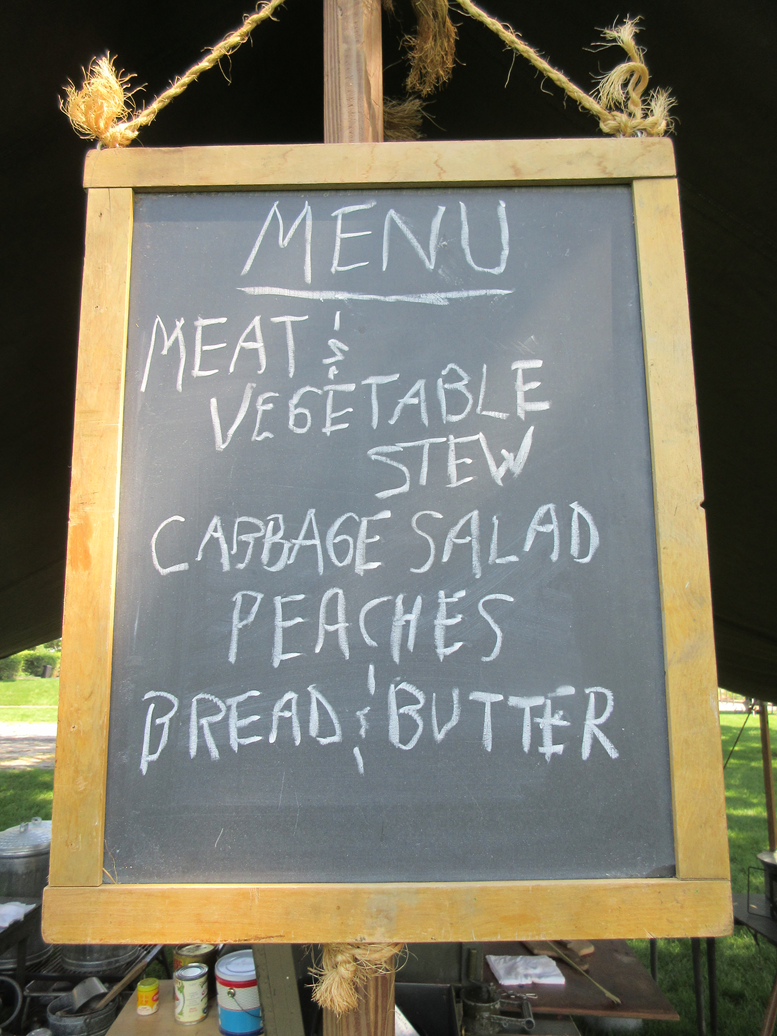 MENU
MEAT &
VEGETABLE
STEW
CABBAGE SALAD
PEACHES
BREAD & BUTTER